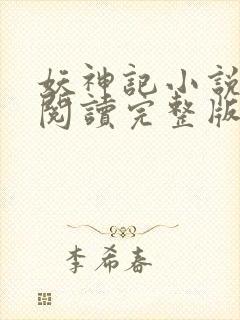 妖神記小說
閱讀完整版
李希春